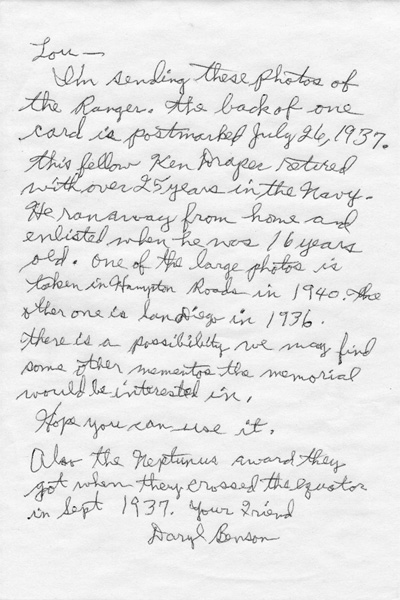 Lou —
I'm sending these photos of
the Ranger. The back of one
card is postmarked July 26, 1937.
This fellow Ken Draper retired
with over 25 years in the Navy.
He ran away from home and
enlisted when he was 16 years
old. One of the large photos is
taken in Hampton Roads in 1940. The
other one is San Diego in 1936.
There is a possibility we may find
some other mementos the memorial
would be interested in.
Hope you can use it.
Also the Neptunus award they
got when they crossed the equator
in Sept 1937. Your Friend
Daryl Benson